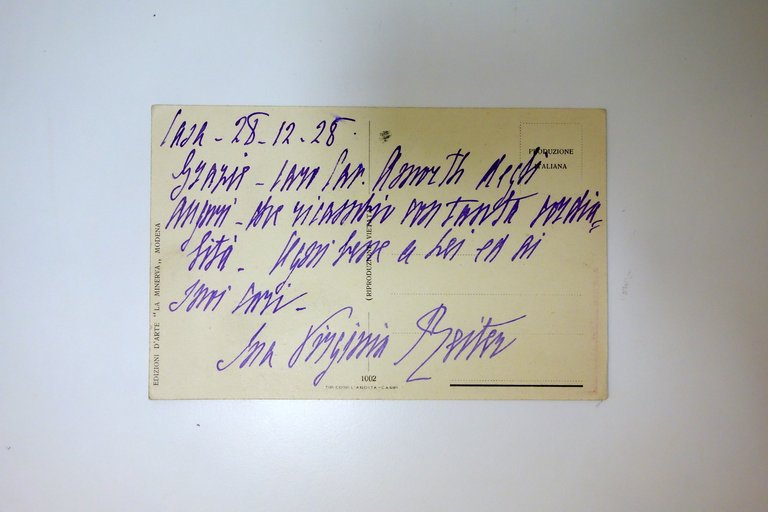 Casa - 28-12-28.
Grazie - caro Cav. degli
auguri - che ricambio con tanta cordia=
lità - Ogni bene a Lei ed ai
suoi cari -
Sua Virginia Reiter
PRODUZIONE
ITALIANA
EDIZIONI D'ARTE "LA MINERVA" MODENA
(RIPRODUZIONE VIETATA)
1002